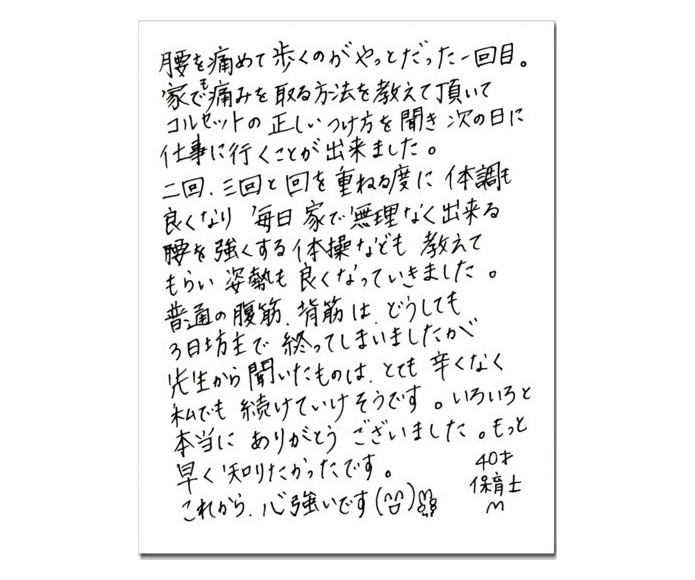 腰を痛めて歩くのがやっとだった一回目。
家でも痛みを取る方法を教えて頂いて
コルセットの正しいつけ方を聞き次の日に
仕事に行くことが出来ました。
二回、三回と回を重ねる度に体調も
良くなり毎日家で無理なく出来る
腰を強くする体操なども教えて
もらい姿勢も良くなっていきました。
普通の腹筋、背筋は、どうしても
3日坊主で終ってしまいましたが
先生から聞いたものは、とても辛くなく
私でも続けていけそうです。いろいろと
本当にありがとうございました。もっと
早く知りたかったです。
これから、心強いです(^^)
40才
保育士
M